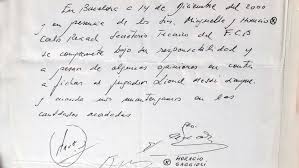 En Barcelona a 14 de Diciembre del 2000
y en presencia de los Srs. Minguella y Horacio
Carlos Rexach Secretario Técnico del F.C.B
se compromete bajo su responsabilidad y
a pesar de algunas opiniones en contra
a fichar al jugador Lionel Messi siempre
y cuando nos mantengamos en las
cantidades acordadas
HORACIO
GAGGIOLI